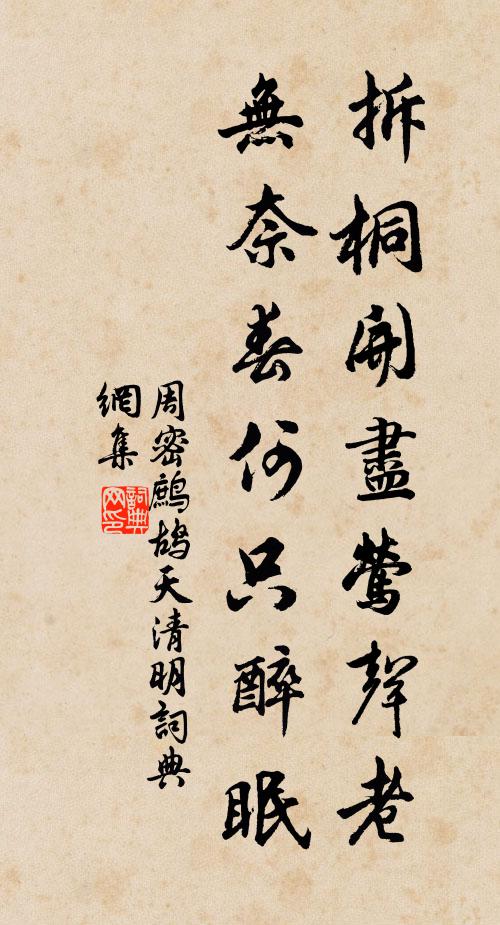 拆桐開盡鶯聲老
無奈春何只醉眠
周密鷓鴣天清明詞典
網集
詞典
网印